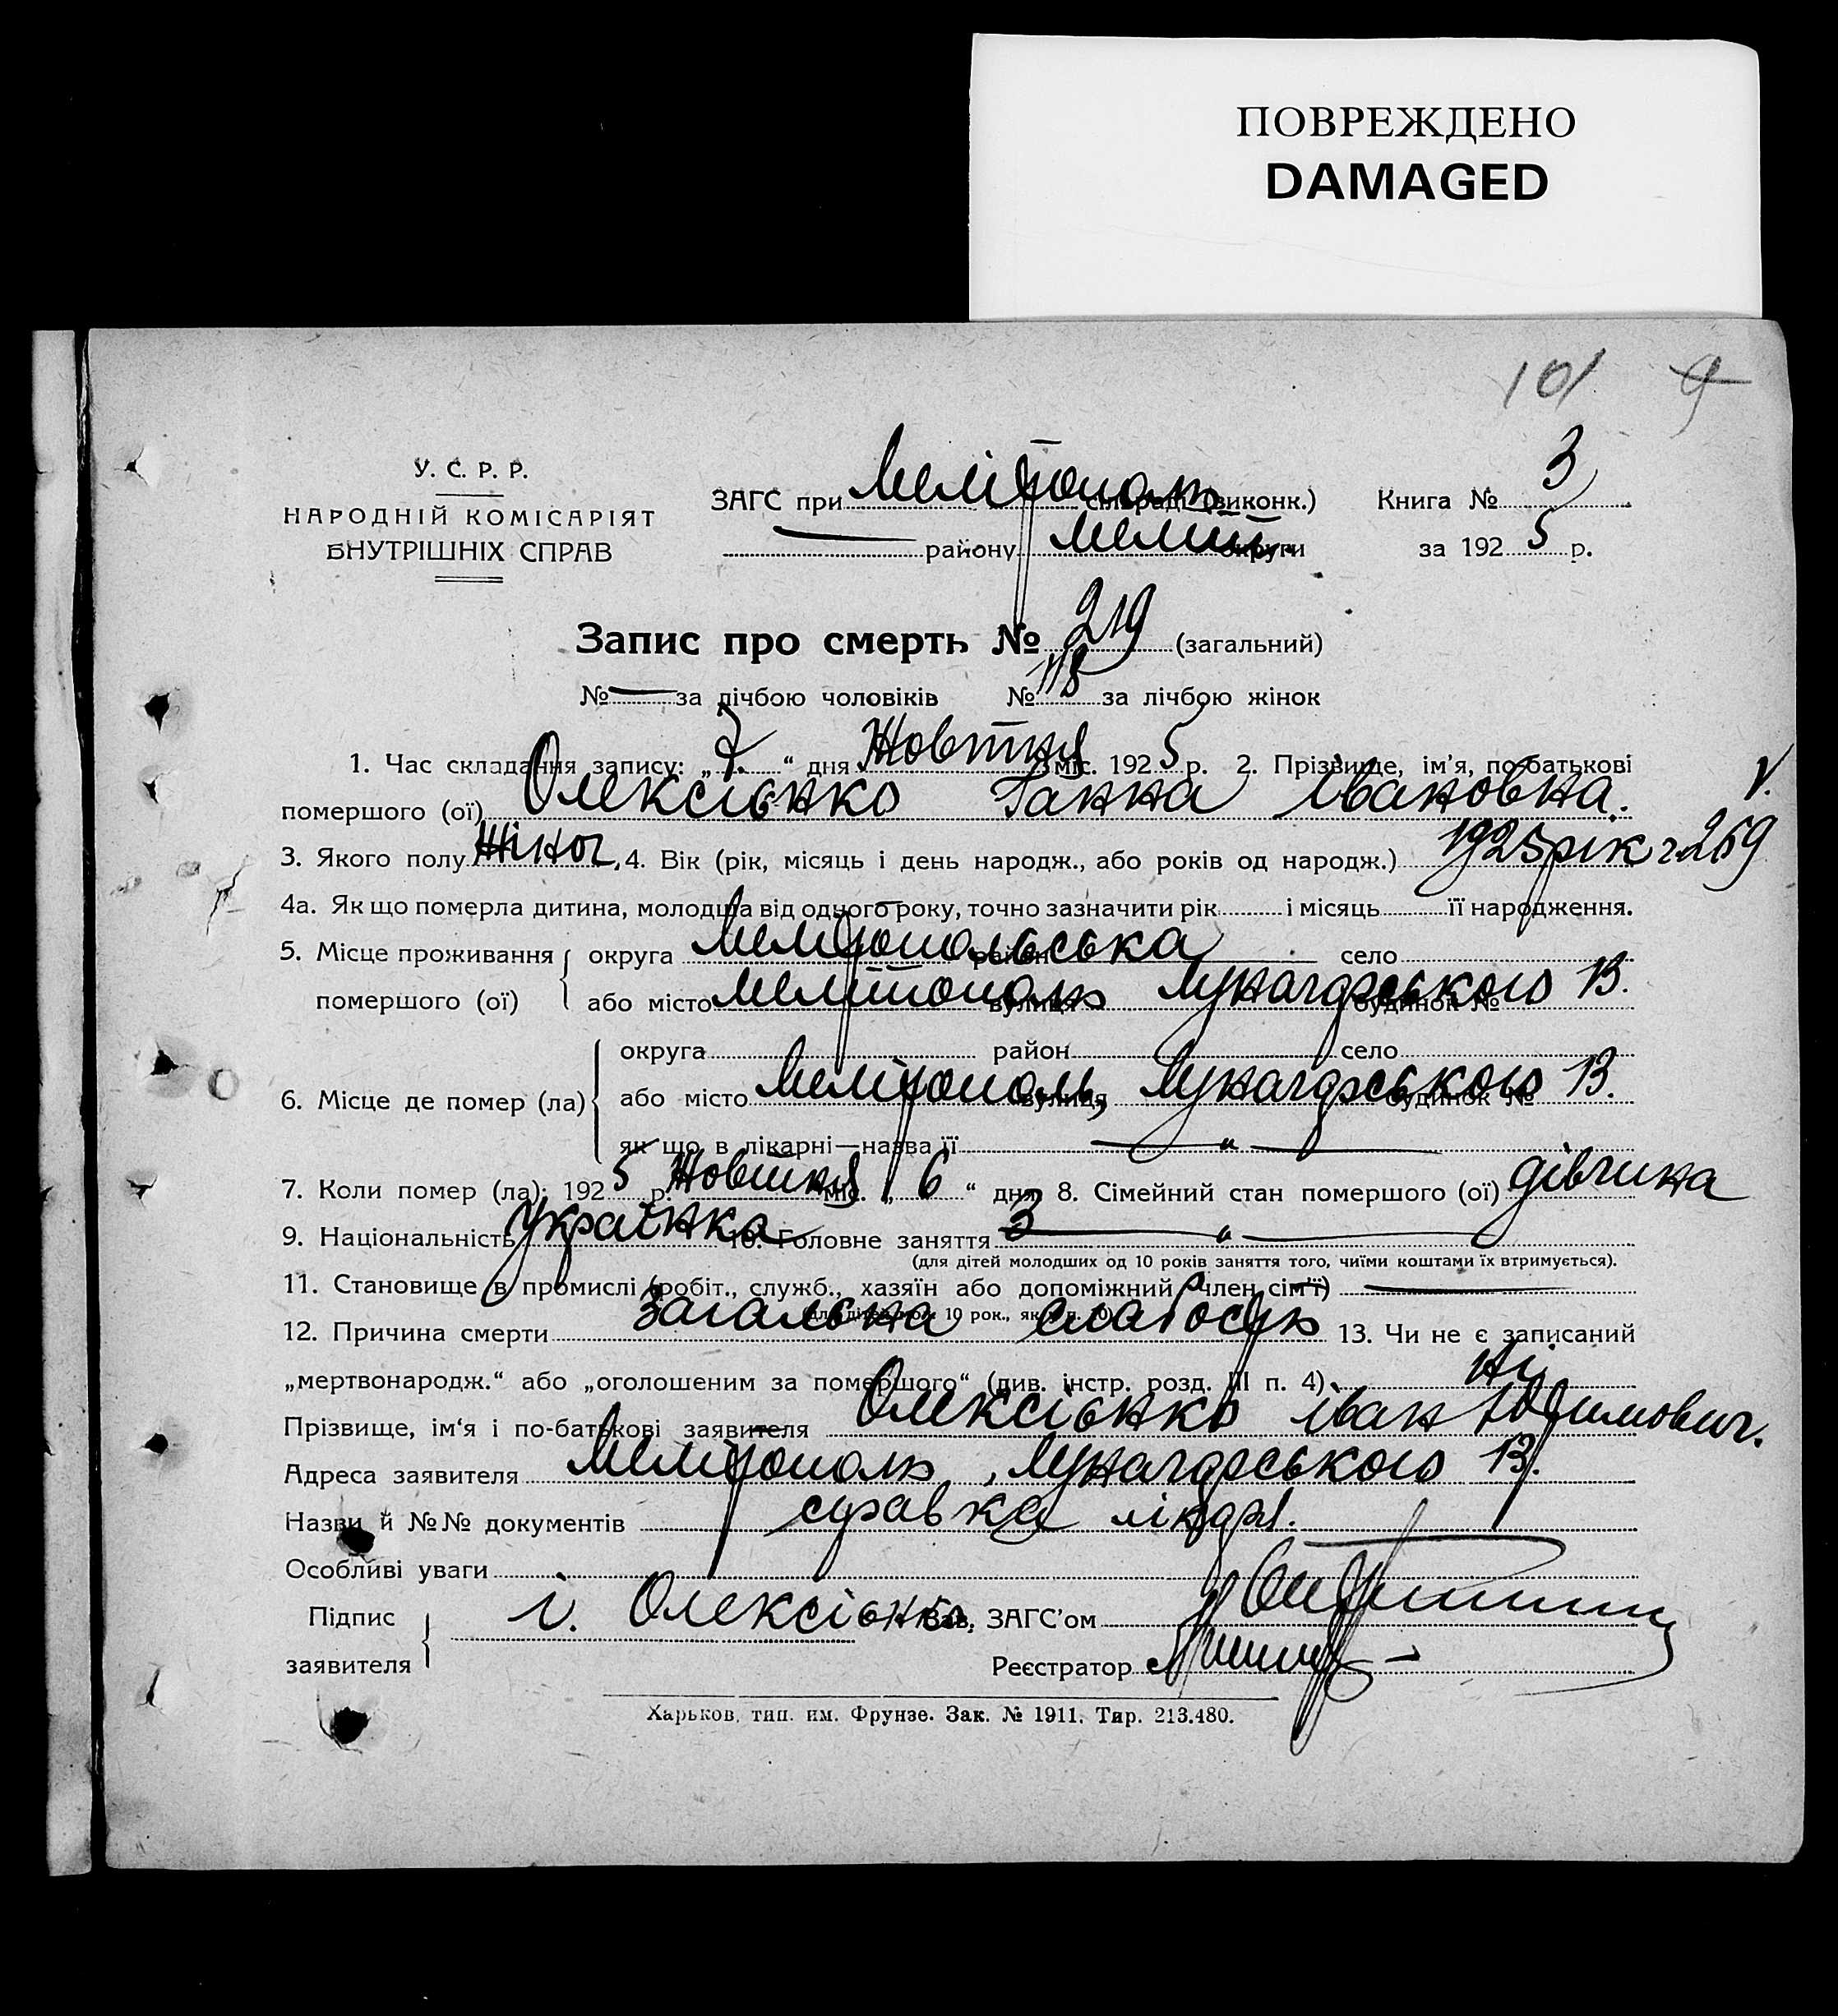 ПОВРЕЖДЕНО
DAMAGED
101 9
У. С. Р. Р.
НАРОДНІЙ КОМІСАРІЯТ
ВНУТРІШНІХ СПРАВ
ЗАГС при Мелітополь сільраді (виконк.) Книга № 3
району Меліт. округи за 1925 р.
Запис про смерть № 219 (загальний)
№ — за лічбою чоловіків № 118 за лічбою жінок
1. Час складання запису: „7.“ дня Жовтня міс. 1925 р. 2. Прізвище, ім'я, по-батькові
помершого (ої) Олексієнко Ганна Івановна. V.
3. Якого полу Жіноч. 4. Вік (рік, місяць і день народж., або років од народж.) 1925 рік 269
4а. Як що померла дитина, молодша від одного року, точно зазначити рік і місяць її народження.
5. Місце проживання помершого (ої) округа Мелітопольська район — село
або місто Мелітополь вулиця Луначарського будинок № 13.
6. Місце де помер (ла) округа район село
або місто Мелітополь, вулиця Луначарського будинок № 13.
як що в лікарні—назва її — „ —
7. Коли помер (ла): 1925 р. Жовтня міс. „6“ дня 8. Сімейний стан помершого (ої) дівчина
9. Національність Українка 10. Головне заняття — „ —
(для дітей молодших од 10 років заняття того, чиїми коштами їх втримується).
11. Становище в промислі (робіт., служб., хазяїн або допоміжний член сім'ї) —
(для дітей мол. 10 рок., як в п. 10)
12. Причина смерти Загальна слабость 13. Чи не є записаний
„мертвонародж.“ або „оголошеним за помершого“ (див. інстр. розд. III п. 4) Ні
Прізвище, ім'я і по-батькові заявителя Олексієнко Іван
Адреса заявителя Мелітополь, Луначарського 13.
Назви й №№ документів справка лікаря.
Особливі уваги
Підпис заявителя І. Олексієнко. Зав. ЗАГС'ом
Реєстратор
Харьков, тип. им. Фрунзе. Зак. № 1911. Тир. 213.480.